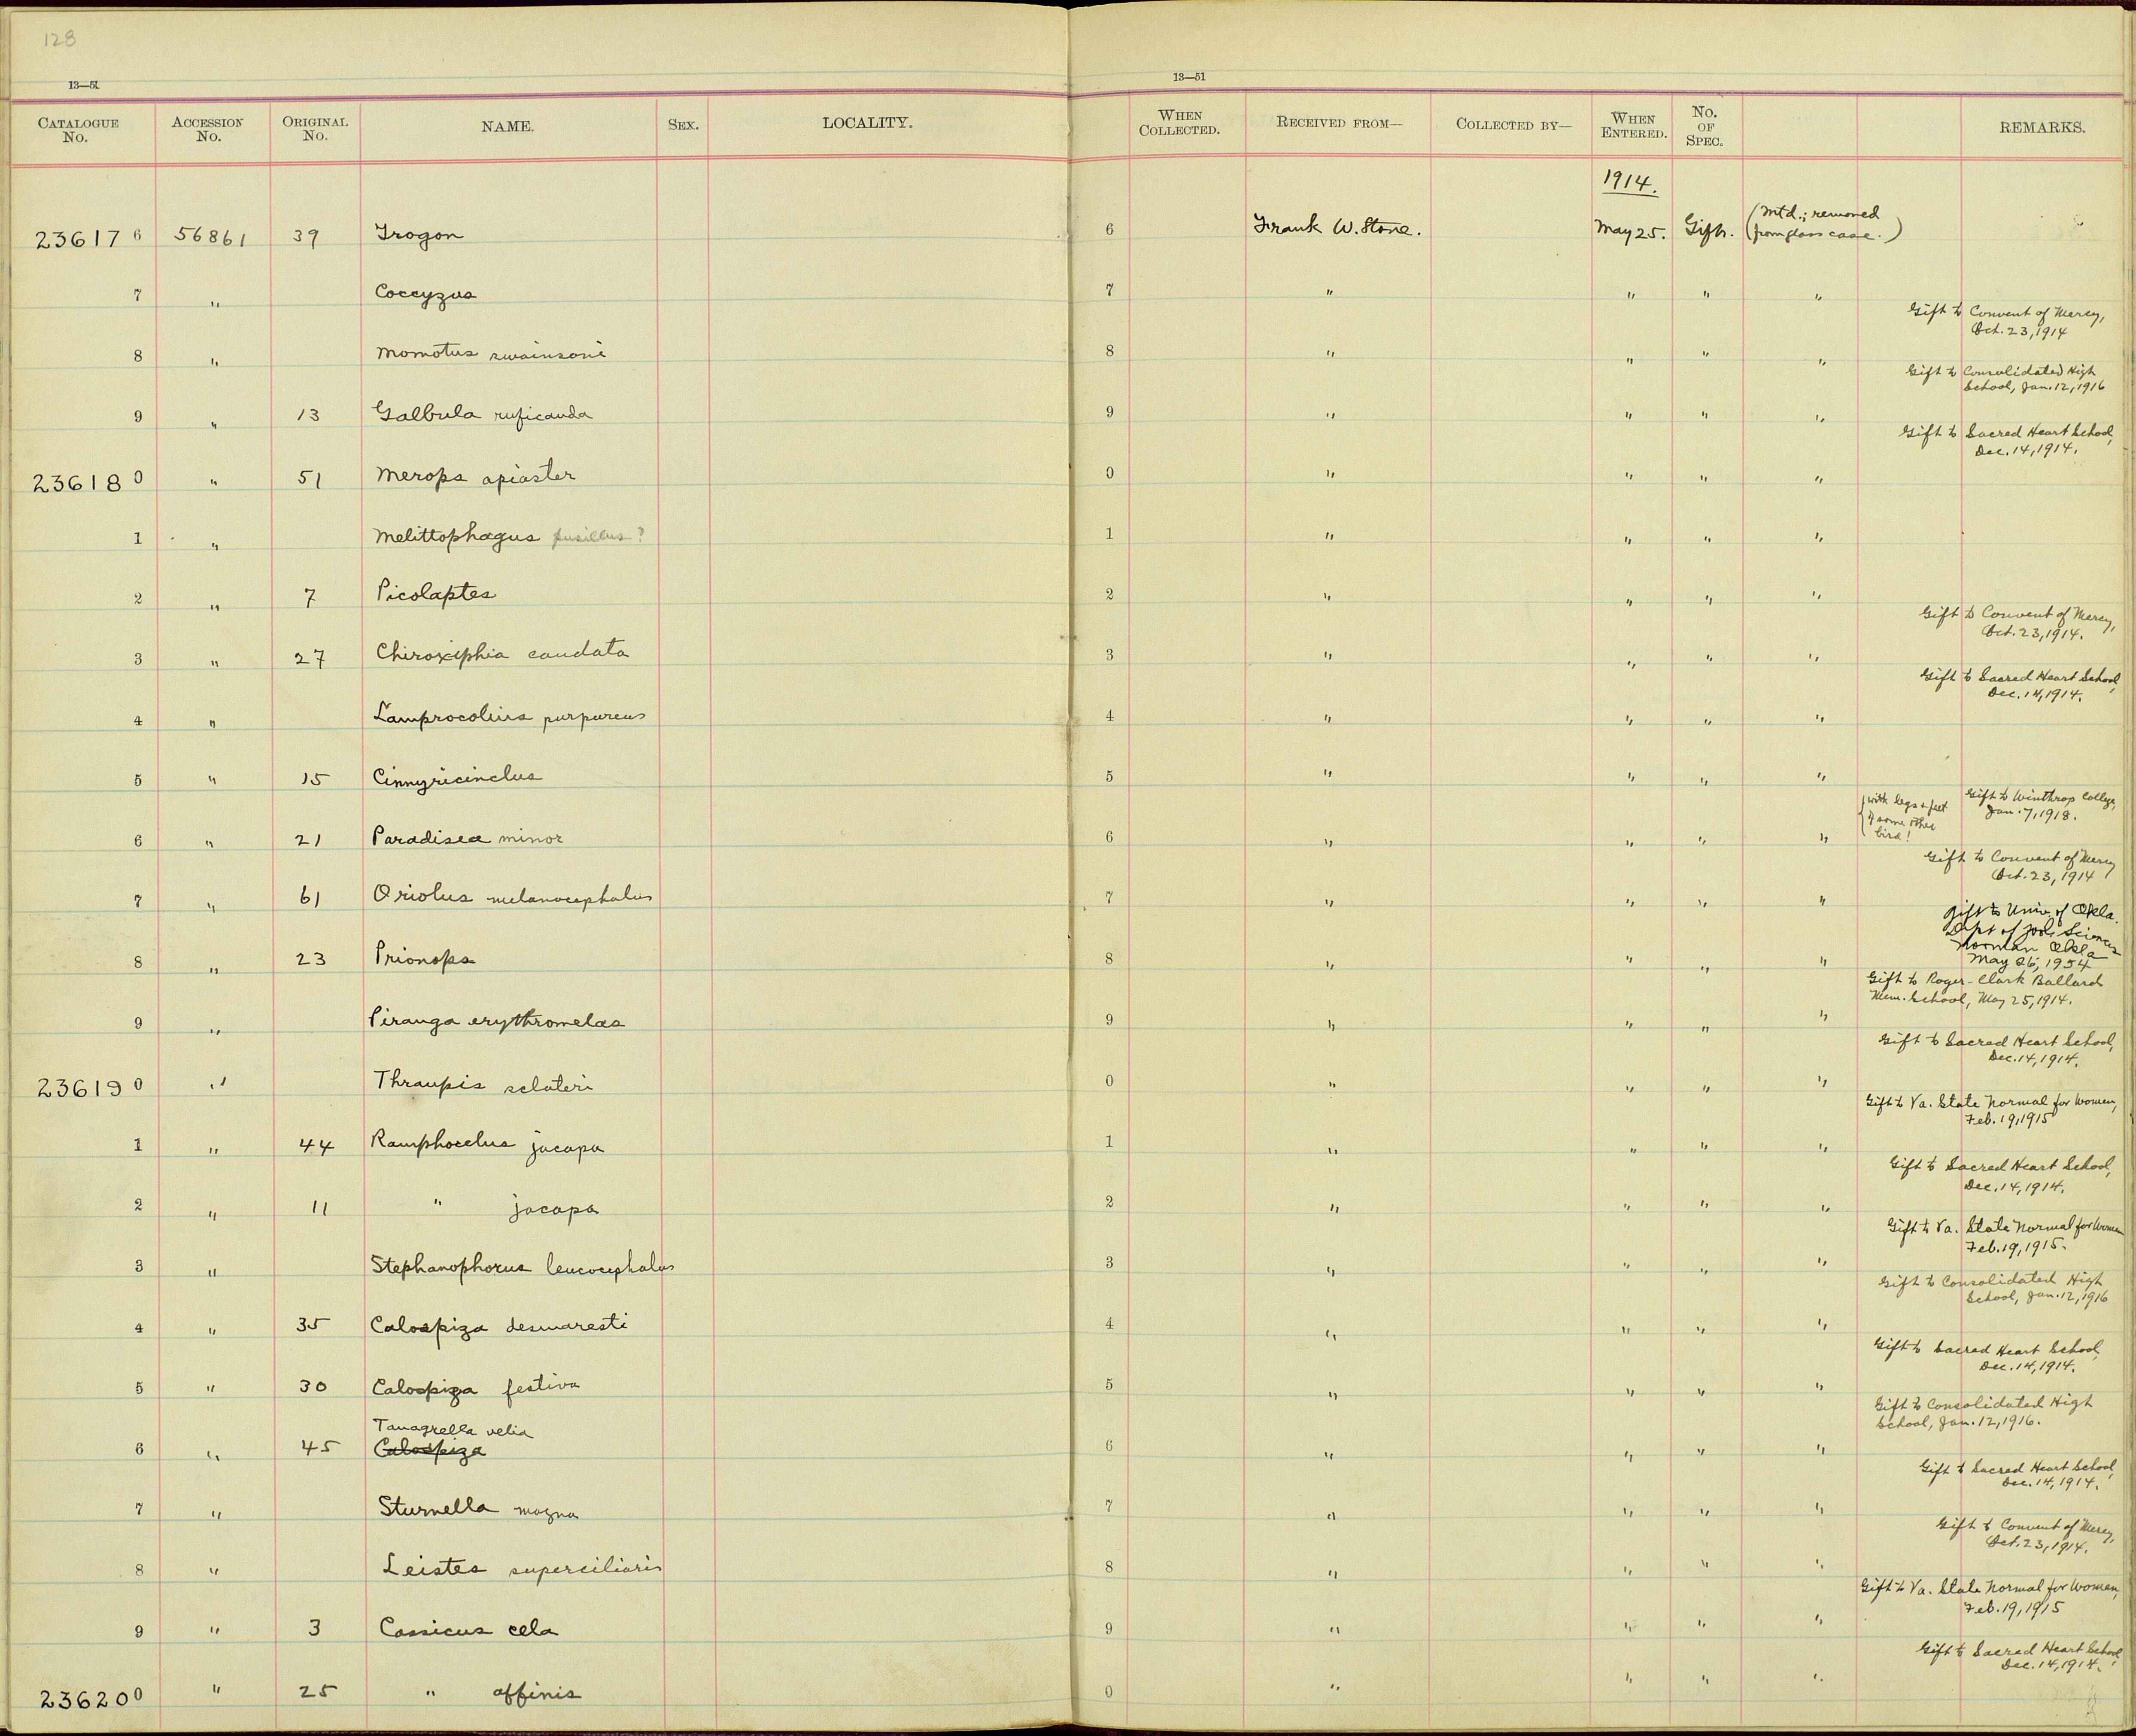 128
13—51
13—51
CATALOGUE No. ACCESSION No. ORIGINAL No. NAME. SEX. LOCALITY. WHEN COLLECTED. RECEIVED FROM— COLLECTED BY— WHEN ENTERED. No. OF SPEC. REMARKS.
1914.
236176 56861 39 Trogon 6 Frank W. Stone. May 25. Gift. (Mtd.; removed from glass case.)
7 " Coccyzus 7 " " " "
Gift to Convent of Mercy,
Oct. 23, 1914
8 " Momotus swainsoni 8 " " " "
Gift to Consolidated High
School, Jan. 12, 1916
9 " 13 Galbula ruficauda 9 " " " "
Gift to Sacred Heart School,
Dec. 14, 1914.
236180 " 51 Merops apiaster 0 " " " "
1 " Melittophagus pusillus? 1 " " " "
2 " 7 Picolaptes 2 " " " "
Gift to Convent of Mercy,
Oct. 23, 1914.
3 " 27 Chiroxiphia caudata 3 " " " "
Gift to Sacred Heart School,
Dec. 14, 1914.
4 " Lamprocolius purpureus 4 " " " "
5 " 15 Cinnyricinclus 5 " " " "
{with legs & feet
of some other
bird!
Gift to Winthrop College,
Jan. 7, 1918.
6 " 21 Paradisea minor 6 " " " "
Gift to Convent of Mercy
Oct. 23, 1914
7 " 61 Oriolus melanocephalus 7 " " " "
Gift to Univ. of Okla.
Dept of Zool. Sciences
Norman Okla
May 26, 1954
8 " 23 Prionops 8 " " " "
Gift to Roger-Clark Ballard
Mem. School, May 25, 1914.
9 " Piranga erythromelas 9 " " " "
Gift to Sacred Heart School,
Dec. 14, 1914.
236190 " Thraupis sclateri 0 " " " "
Gift to Va. State Normal for Women,
Feb. 19, 1915
1 " 44 Ramphocelus jacapa 1 " " " "
Gift to Sacred Heart School,
Dec. 14, 1914.
2 " 11 " jacapa 2 " " " "
Gift to Va. State Normal for Women
Feb. 19, 1915.
3 " Stephanophorus leucocephalus 3 " " " "
Gift to Consolidated High
School, Jan. 12, 1916
4 " 35 Calospiza desmaresti 4 " " " "
Gift to Sacred Heart School,
Dec. 14, 1914.
5 " 30 Calospiza festiva 5 " " " "
Gift to Consolidated High
School, Jan. 12, 1916.
Tanagrella velia
6 " 45 Calospiza 6 " " " "
Gift to Sacred Heart School,
Dec. 14, 1914.
7 " Sturnella magna 7 " " " "
Gift to Convent of Mercy,
Oct. 23, 1914.
8 " Leistes superciliaris 8 " " " "
Gift to Va. State Normal for Women,
Feb. 19, 1915
9 " 3 Cassicus cela 9 " " " "
Gift to Sacred Heart School,
Dec. 14, 1914.
236200 " 25 " affinis 0 " " " "